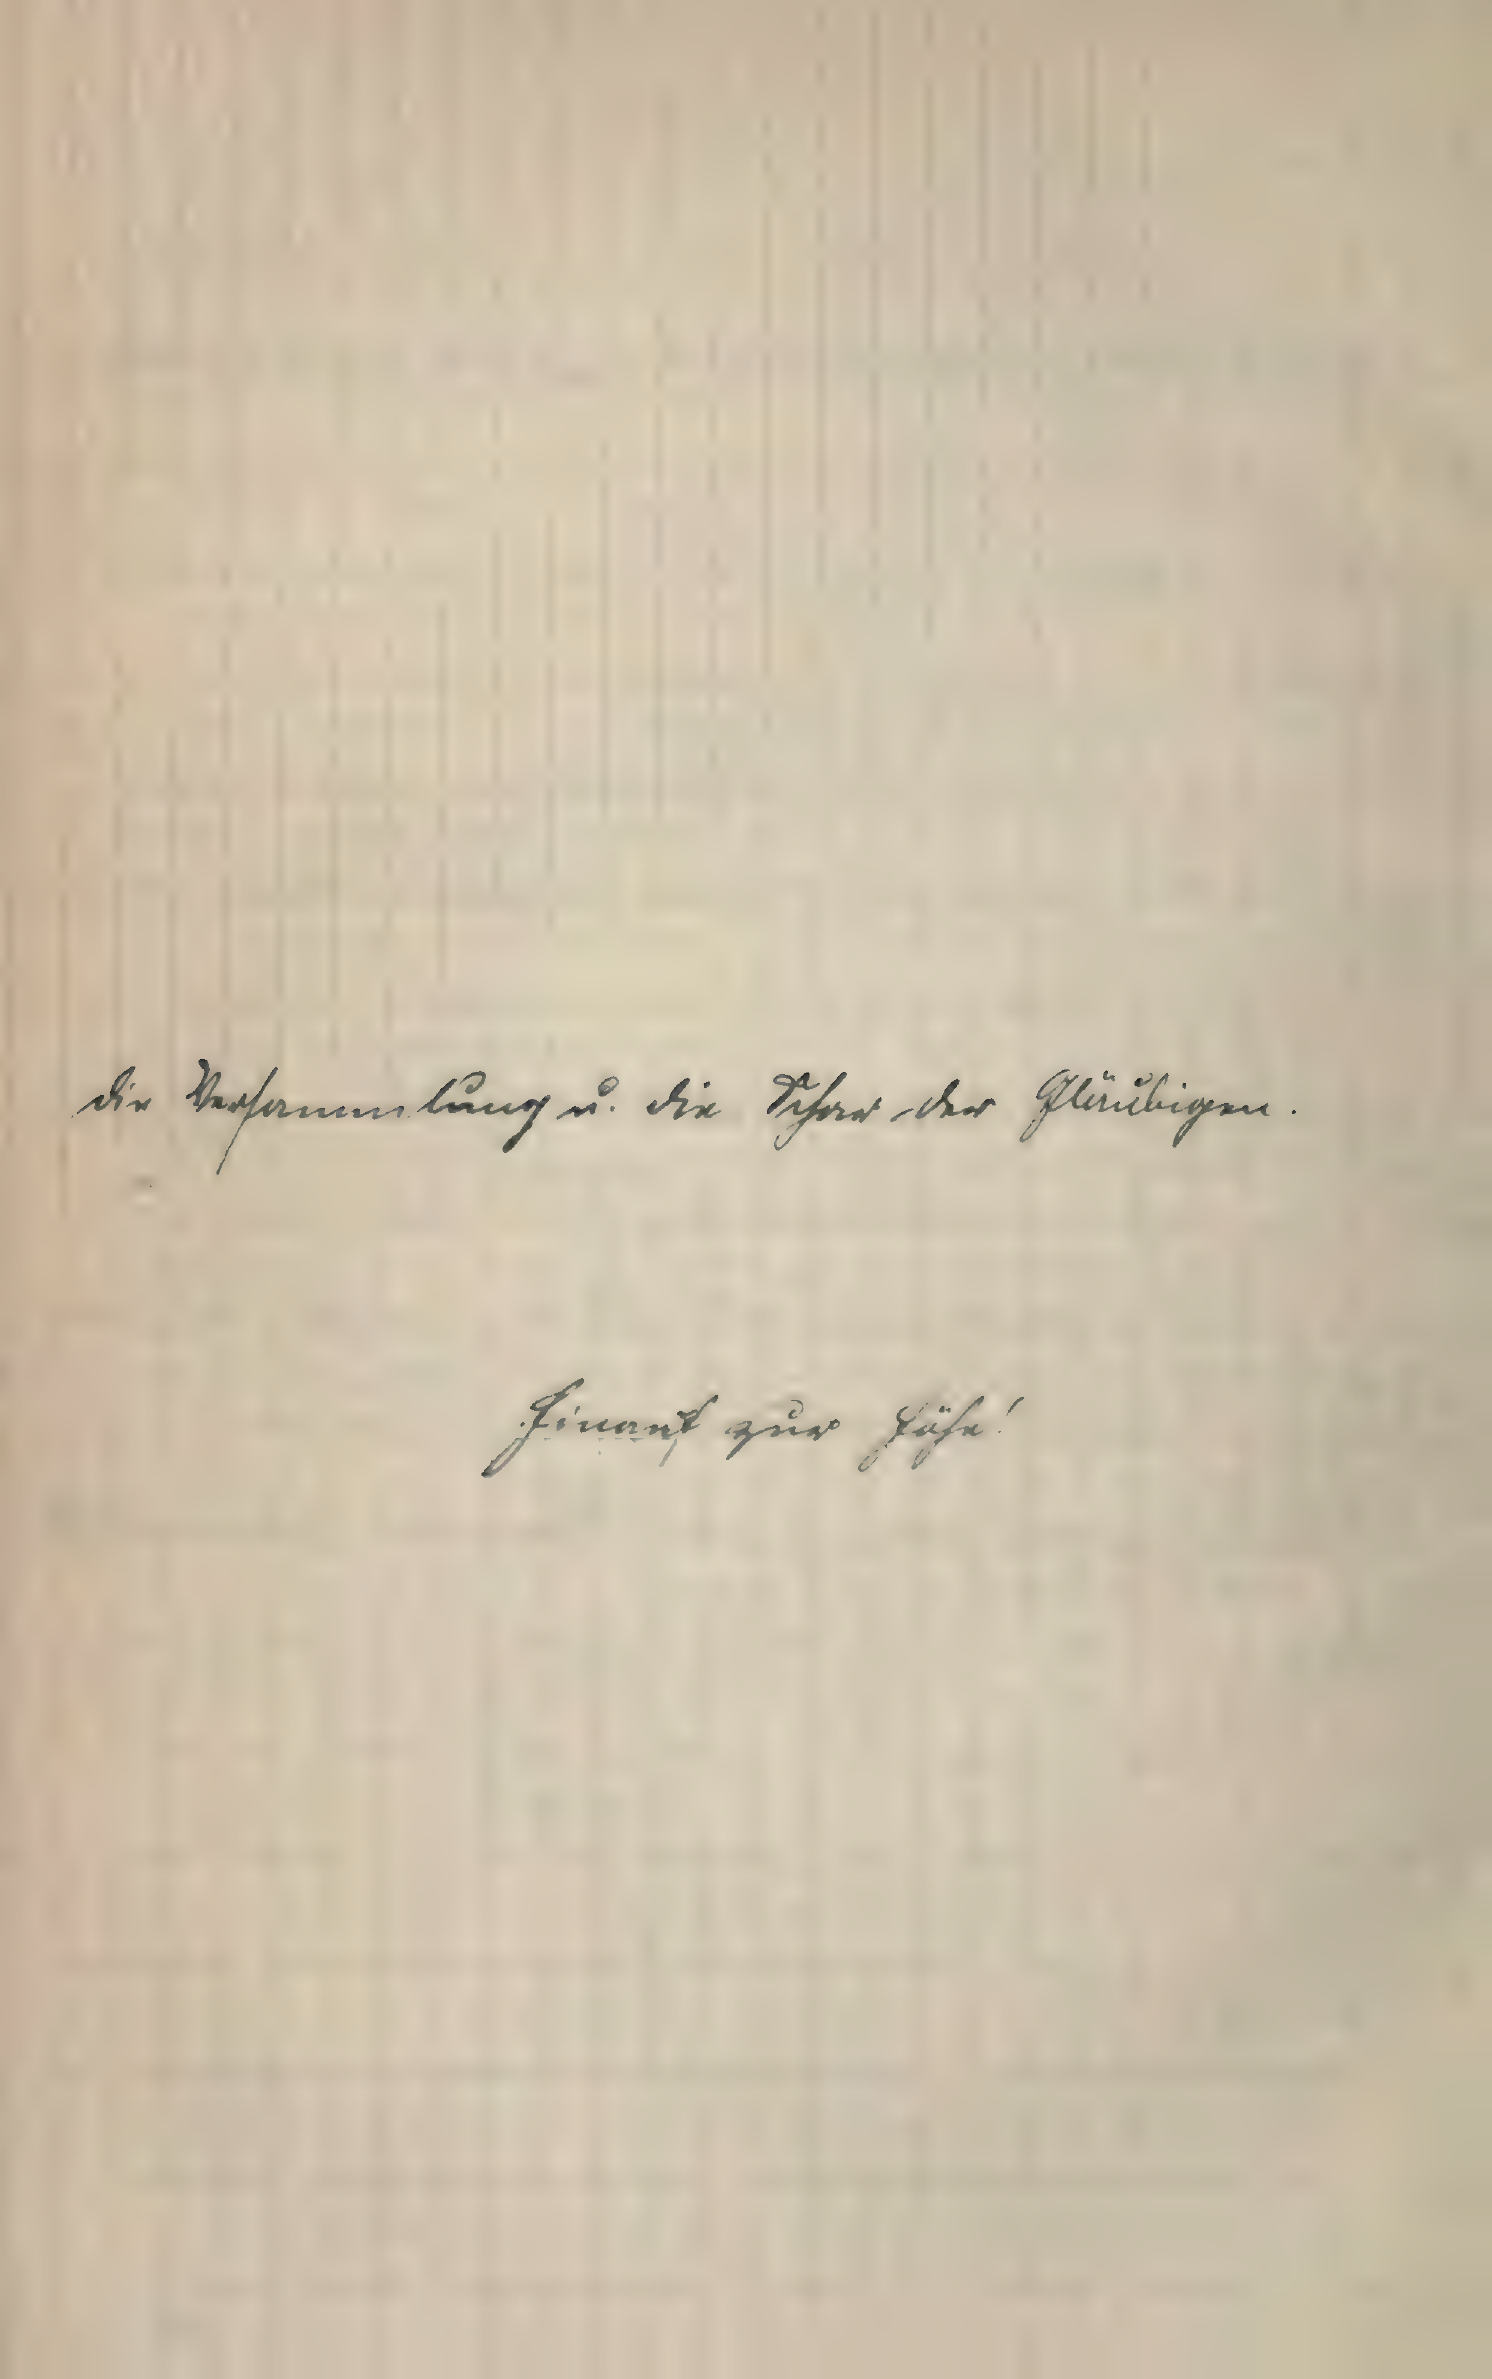 die Versammlung u. die Schar der Gläubigen.
Hinauf zur Höhe!